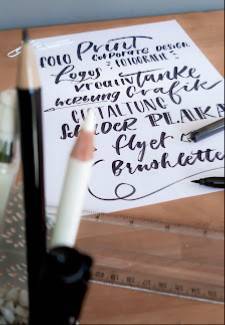 FOTO Print
CORPORATE DESIGN
Logos & FOTOGRAFIE
Werbung Grafik
GESTALTUNG
SCHILDER PLAKA
Flyer
Brushlette